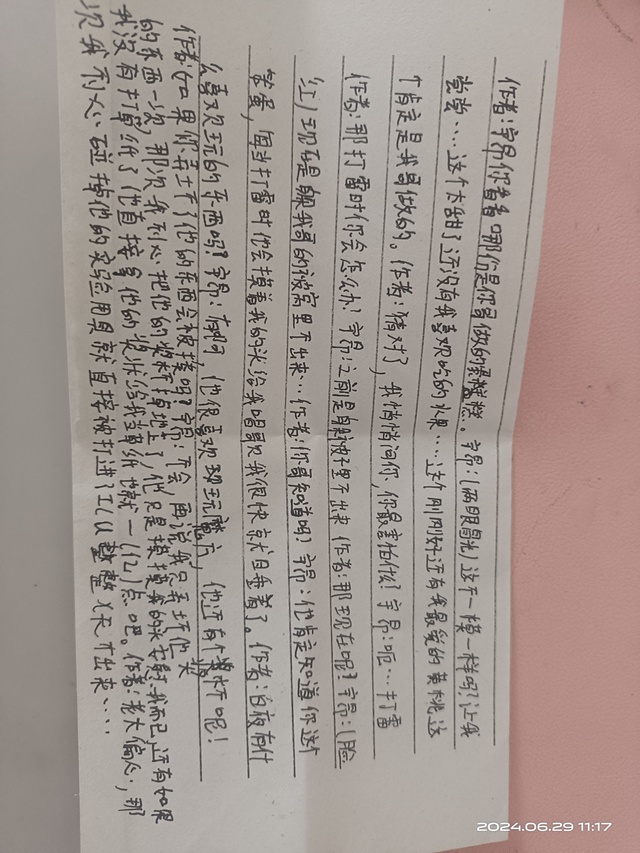 作者:字昂你看看哪份是你哥做的蛋糕。字昂:(两眼冒光)这不一模一样吗?让我
尝尝…这个太甜了还没有我喜欢吃的水果…这个刚刚好还有我最爱的黄桃这
个肯定是我哥做的。作者:猜对了,我悄悄问你,你最害怕什么?字昂:呃…打雷
作者:那打雷时你会怎么办?字昂:之前是躲被子里不出来 作者:那现在呢?字昂:(脸
红)现在是躲我哥的被窝里不出来…作者:你哥知道吗?字昂:他肯定知道你这个
笨蛋,每当打雷时他会摸着我的头给我唱歌我很快就自睡着了。作者:白夜有什
么喜欢玩的东西吗?字昂:有啊,他很喜欢玩魔方,他还有个奖杯呢!
作者:如果你弄坏了他的东西会被揍吗?字昂:不会,再说我只弄坏他
的东西一次,那次我不小心把他的奖杯掉地上了,他只是摸摸我的头安慰我而已,还有如果
我没有打草纸了他直接拿他的奖状给我当草纸他就一(亿)点吧。作者:老大偏心,那
次我不小心碰掉他的实验用具就直接被打进了ICU整整 天才出来…
2024.06.29 11:17